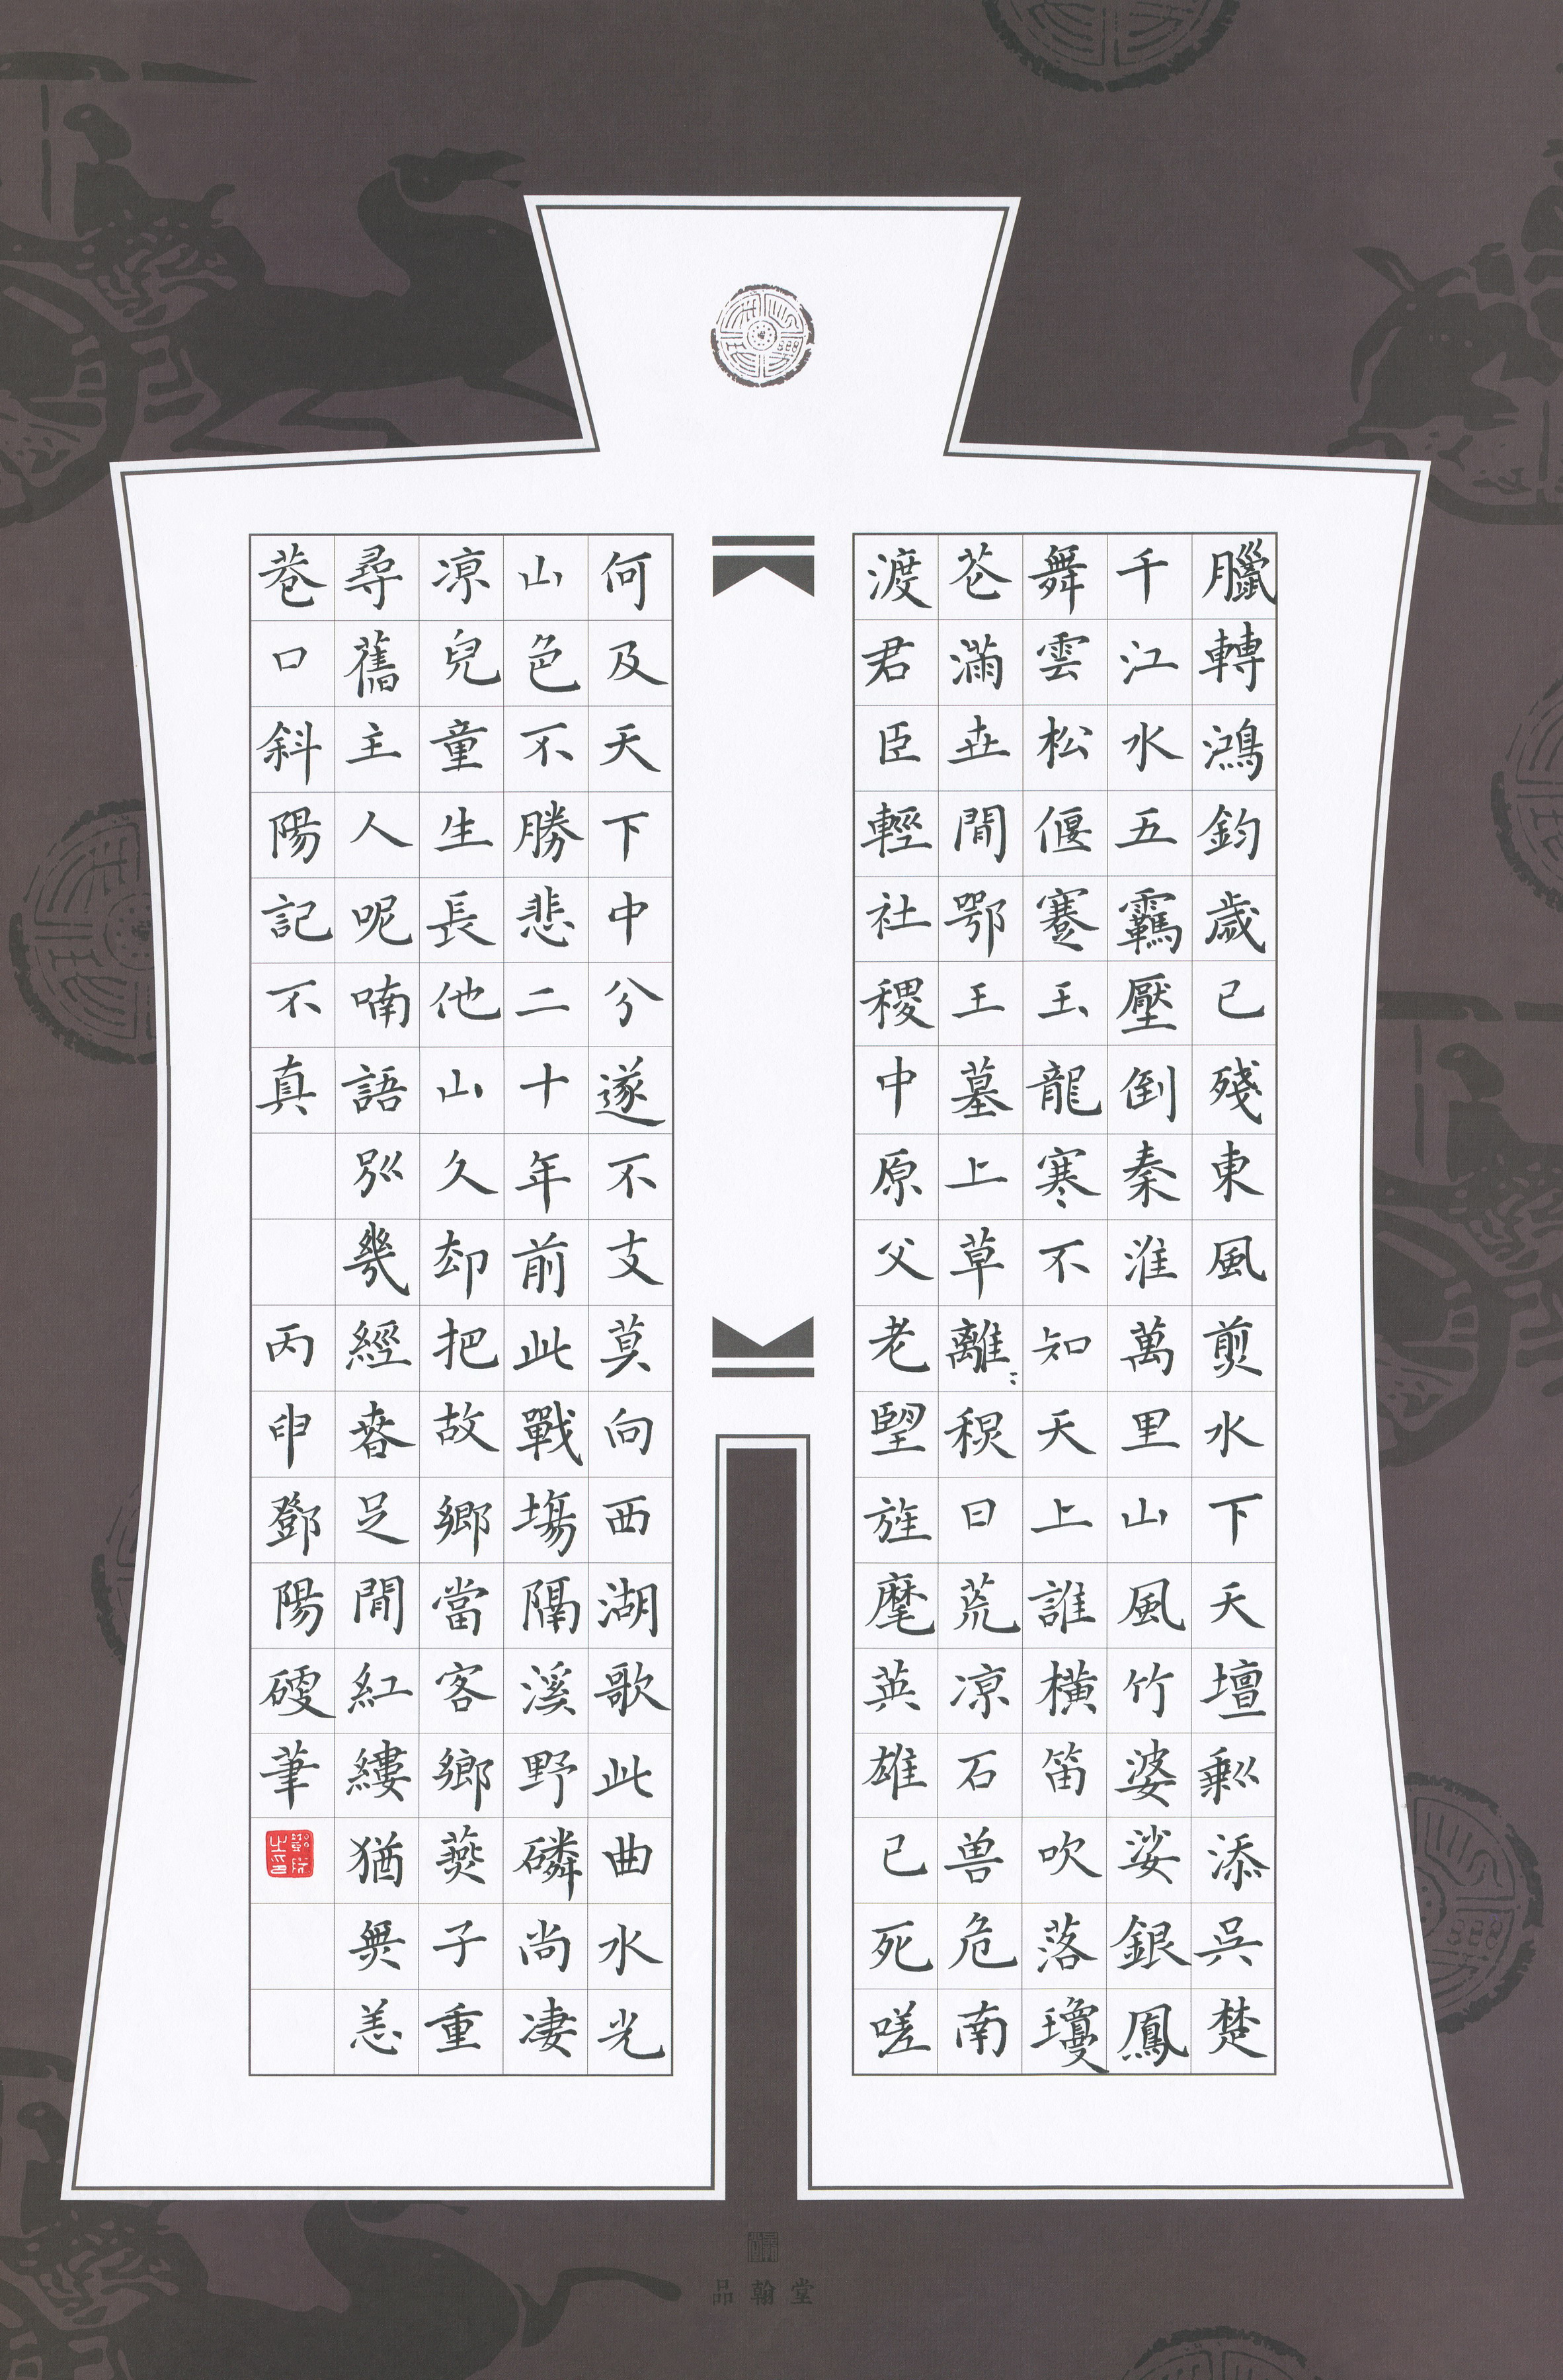 臘轉鴻鈞歲已殘東風剪水下天壇剩添吳楚
千江水五羈壓倒秦淮萬里山風竹婆娑銀鳳
舞雲松偃蹇玉龍寒不知天上誰橫笛吹落瓊
花滿世間鄂王墓上草離〻稷日荒凉石兽危南
渡君臣輕社稷中原父老望旌麾英雄已死嗟
何及天下中分遂不支莫向西湖歌此曲水光
山色不勝悲二十年前此戰場隔溪野磷尚凄
凉兒童生長他山久却把故鄉當客鄉燕子重
尋舊主人呢喃語別幾經春足間紅縷猶無恙
巷口斜陽記不真 丙申鄧陽筆
品翰堂